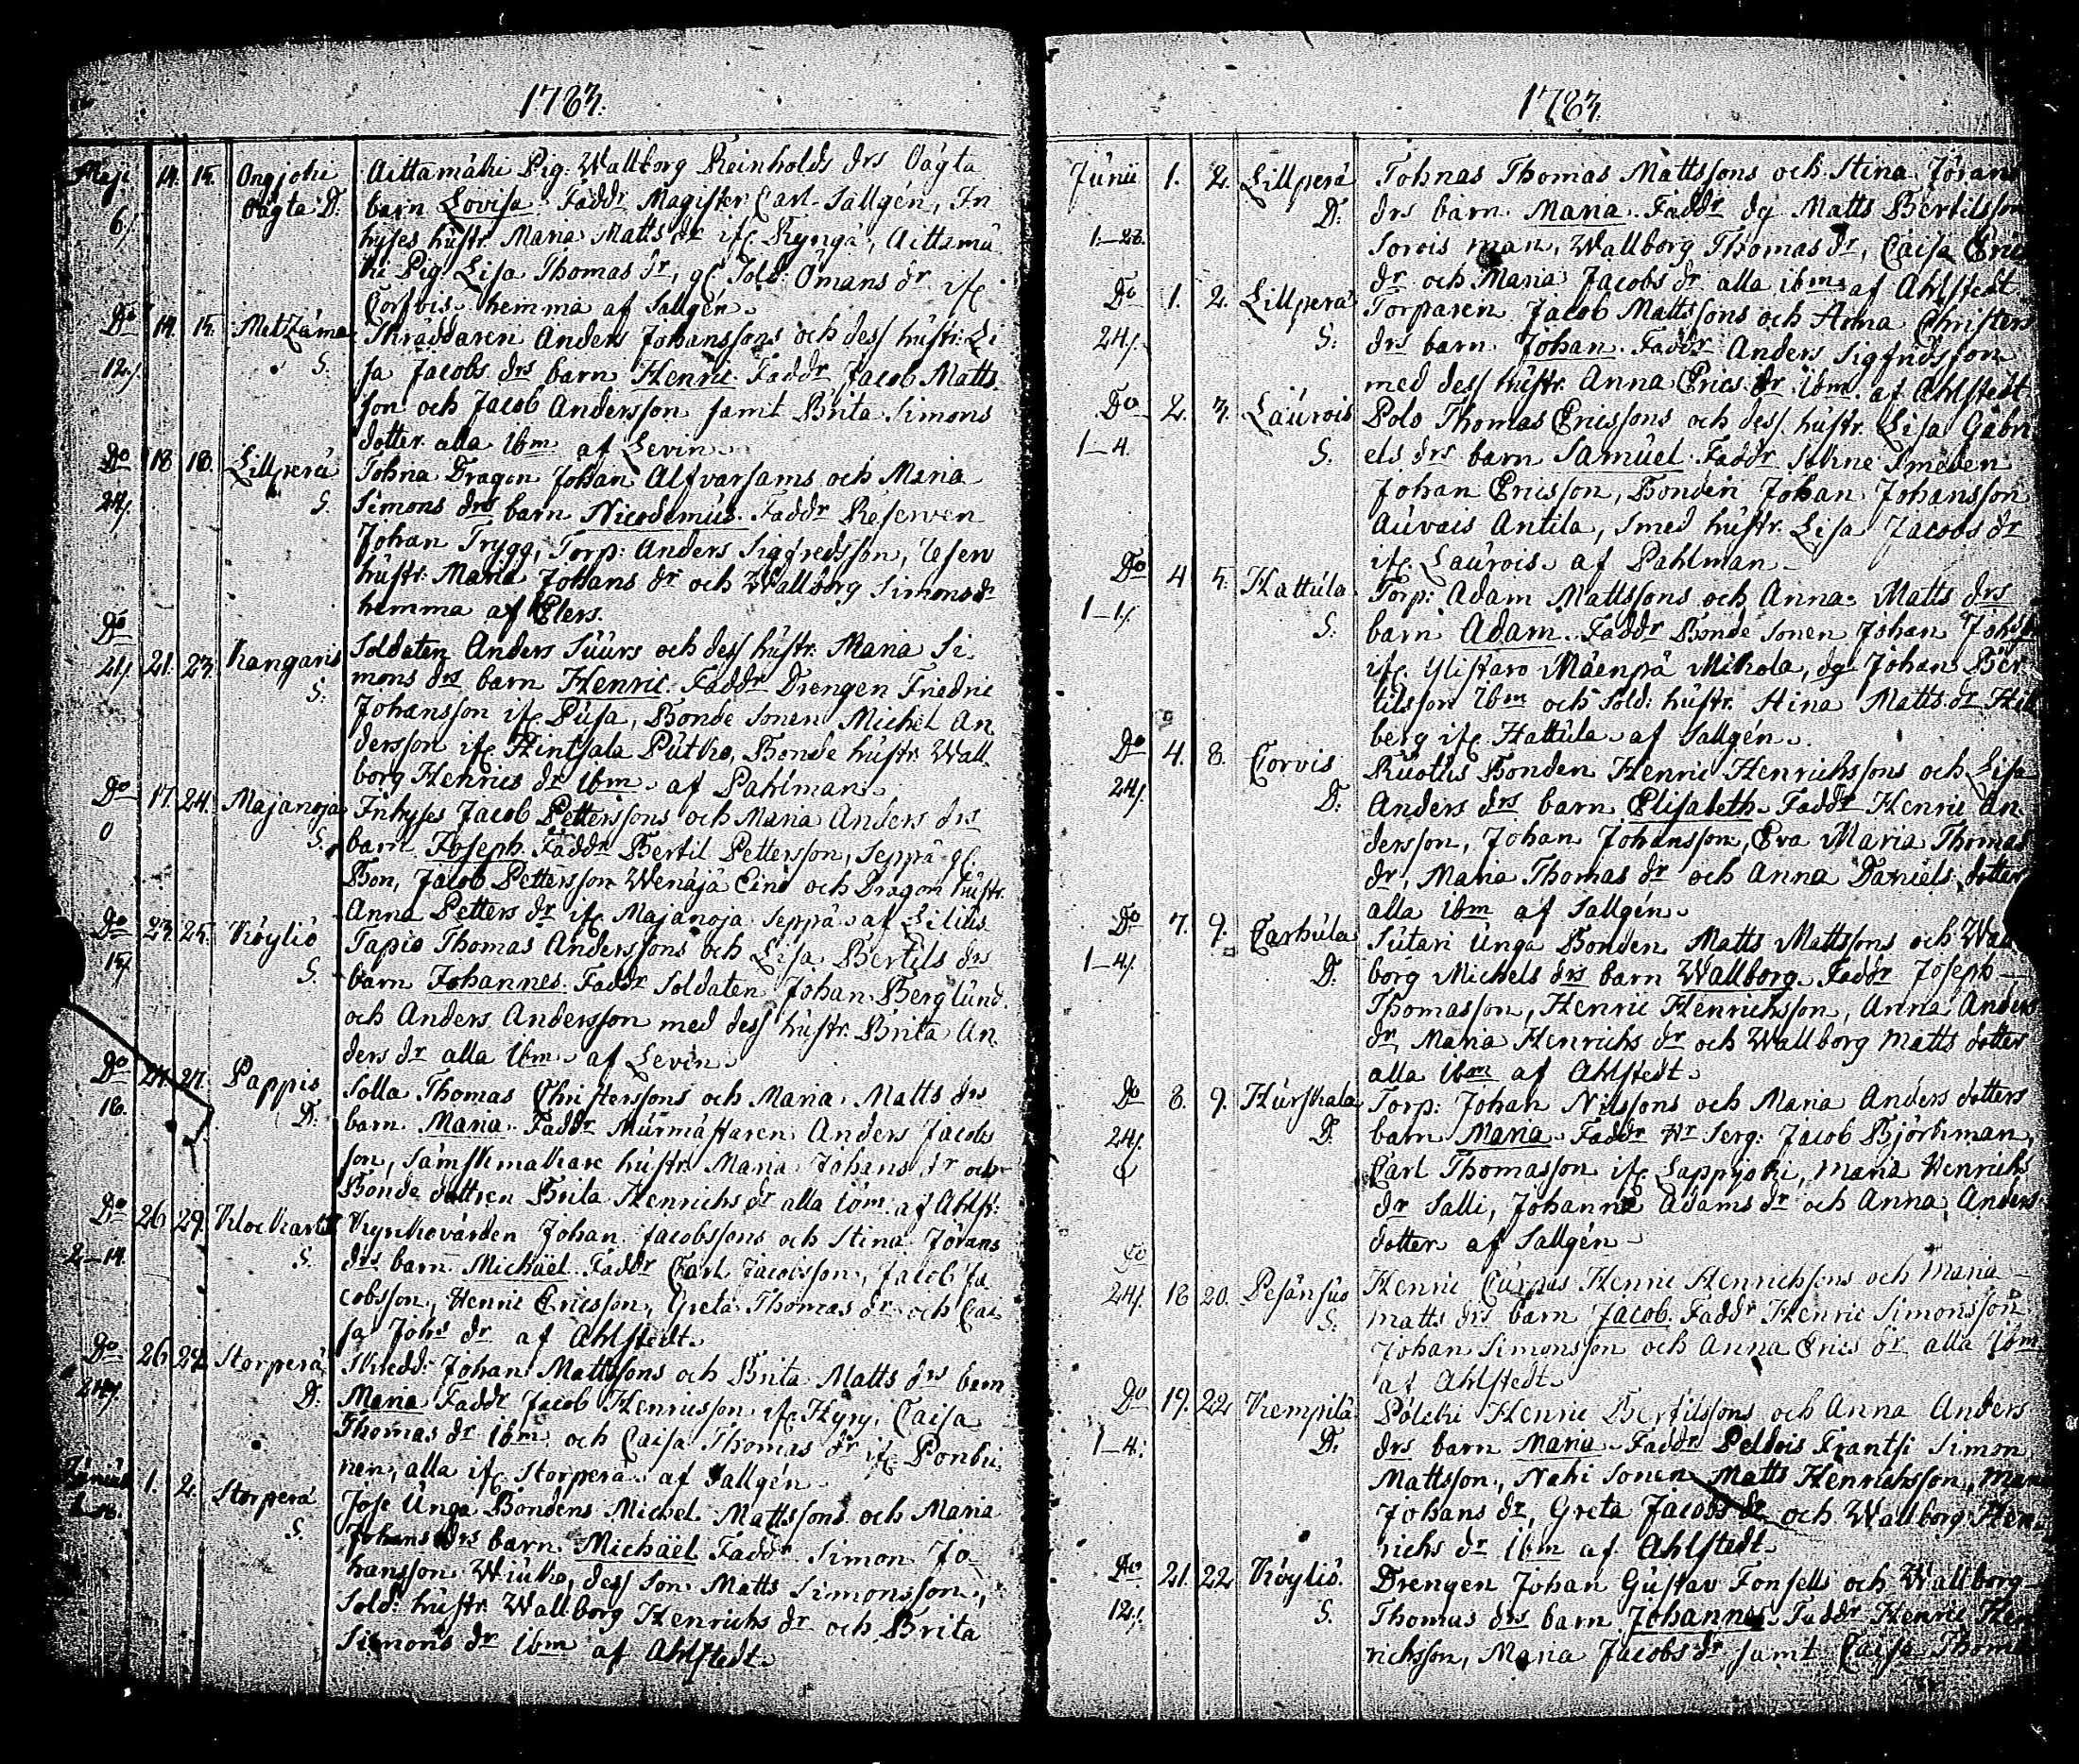 1783.
Maji 14. 15. Ongjoki Aittamäki Pig: Wallborg Reinholds drs Oägta
6/. Oägta D. barn Lovisa. Faddr Magister Carl Sallgén, In
hyses hustr. Maria Matts dr ifr. Kyngä, Aittamä
ki Pig. Lisa Thomas dr, gl. Sold: Ömans dr ifr.
Corfvis hemma af Sallgén.
Do 14. 15. Metzäma Skräddaren Anders Johanssons och dess hustr: Li
12/. S. sa Jacobs drs barn Henric. Faddr Jacob Matts
son och Jacob Andersson samt Brita Simons
dotter alla ibm. af Levin.
Do 18 18. Lillperä Tohna Dragon Johan Alfvarsams och Maria
24/. S. Simons drs barn Nicodemus. Faddr Reserven
Johan Trygg, Torp: Anders Sigfredsson, Reserv
hustr. Maria Johans dr och Wallborg Simons dr
hemma af Elers.
Do Soldaten Anders Suurs och dess hustr. Maria Si
21/. 21. 23. Kangaris mons drs barn Henric. Faddr Drengen Friedric
S. Johansson ifr. Pusa, Bonde Sonen Michel An
dersson ifr. Hintsala Putko, Bonde hustr. Wall
borg Henrics dr ibm af Pahlman.
Do 17. 24. Majanoja Inhyses Jacob Petterssons och Maria Anders drs
0 S. barn Joseph. Faddr Bertil Pettersson, Seppä gl.
Bon, Jacob Pettersson Wenäjä Eino och Dragon hustr.
Anna Petters dr ifr. Majanoja Seppä af Lilius
Do 23. 25. Köyliö Tapio Thomas Anderssons och Lisa Bertils drs
15/. S. barn Johannes. Faddr Soldaten Johan Berglund.
och Anders Andersson med dess hustr. Brita An
ders dr alla ibm. af Levin.
Do 24. 27. Pappis Solla Thomas Christerssons och Maria Matts drs
16. D: barn Maria. Faddr Murmästaren Anders Jacobs
son, Sämskmakare hustr Maria Johans dr och
Bonde dottren Brita Henrichs dr alla ibm. af Ahlst:
Do 26 29. Klockarla Kyrkovärden Johan Jacobssons och Stina Jörans
2–14. S. drs barn Michäel. Faddr Carl Jacobsson, Jacob Ja
cobsson, Henric Ericsson, Greta Thomas dr och Cai
sa Johs dr af Ahlstedt.
Do 26 29. Storperä Skredd: Johan Mattssons och Brita Matts drs barn
24/. D: Maria Faddr Jacob Henricsson ifr. Hyry, Caisa
Thomas dr ibm. och Caisa Thomas dr ifr.
nen, alla ifr. Storperä. af Sallgén
Junius 1. 2. Storperä Jose Unga Bondens Michel Mattssons och Maria
S. Johans drs barn Michäel Faddr Simon Jo
hansson Wiuko, dess Son Matts Simonsson,
Sold: hustr Wallborg Henrichs dr och Brita
Simons dr ibm af Ahlstedt.
1783.
Junii 1. 2. Lillperä Tohnas Thomas Mattssons och Stina Jörans
D: drs barn Maria. Faddr dg Matts Bertilsson
1.–28. Sorois man, Wallborg Thomas dr, Caisa Erics
dr och Maria Jacobs dr alla ibm. af Ahlstedt
Do 1. 2. Lillperä Torparen Jacob Mattssons och Anna Christers
24/. S: drs barn Johan. Faddr Anders Sigfridsson
med dess hustr. Anna Erics dr ibm. af Ahlstedt
Do 2. 3. Laurois Polo Thomas Ericssons och dess hustr. Lisa Gabri
1–4. S. els drs barn Samuel. Faddr Sohne Smeden
Johan Ericsson, Bonden Johan Johansson
Auvais Antila, Smed hustr. Lisa Jacobs dr
ifr. Laurois. af Pahlman
Do 4 5. Hattula Torp: Adam Mattssons och Anna Matts drs
1–1/. S: barn Adam. Faddr Bonde Sonen Johan Johs
ifr. Ylistaro Mäenpä Mikola, dg Johan Ber
tilsson ibm och Sold: hustr. Stina Matts dr
berg ifr. Hattula af Sallgén.
Do 4. 8. Corvis Ruottis Bonden Henric Henrichssons och Lisa
24/. D: Anders drs barn Elisabeth. Faddr Henric An
dersson, Johan Johansson, Eva Maria Thomas
dr, Maria Thomas dr och Anna Daniels dotter
alla ibm af Sallgén.
Do 7. 9. Carhula Sutari Unga Bonden Matts Mattssons och Wall
1–4/. D. borg Michels drs barn Wallborg. Faddr Joseph
Thomasson, Henric Henrichsson, Anna Anders
dr, Maria Henrichs dr och Wallborg Matts dotter
alla ibm af Ahlstedt.
Do 8. 9. Hurskala Torp: Johan Nilssons och Maria Anders dotters
24/. D. barn Maria. Faddr Hr Serg: Jacob Björkman,
Carl Thomasson ifr. Lappjoki, Maria Henrichs
dr Salli, Johanna Adams dr och Anna Anders
dotter af Sallgén
Do 18 20. Pesänsuo Henric Curpas Henric Henrichssons och Maria
24/. S: Matts drs barn Jacob. Faddr Henric Simonsson
Johan Simonsson och Anna Erics dr alla ibm
af Ahlstedt.
Do 19. 22 Kempilä Henric Bertilssons och Anna Anders
1–4: D: drs barn Maria. Faddr Peldois Frantsi Simon
Mattsson, Nahi Sonen Matts Henrichsson, Maria
Johans dr, Greta Jacobs dr och Wallborg Hen
richs dr ibm af Ahlstedt.
Do 21. 22 Köyliö. Drengen Johan Gustav Fonsells och Wallborg
12/. S. Thomas drs barn Johannes. Faddr Henric Hen
richsson, Maria Jacobs dr samt Caisa Thoma